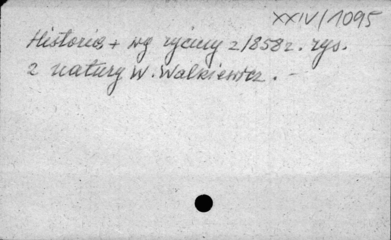 XXIV/1095
Historia + wg ryciny z 1858 r. rys.
z natury W. Walkiewicz. -